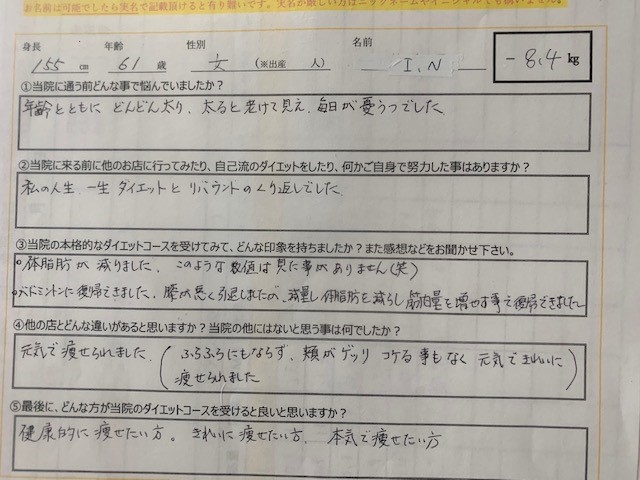 お名前は可能でしたら実名で記載頂けると有り難いです。実名が厳しい方はニックネームやイニシャルでも構いません。
身長 年齢 性別 名前
155 cm 61 歳 女 (※出産 人) I.N -8.4 kg
①当院に通う前どんな事で悩んでいましたか?
年齢とともに どんどん太り、太ると老けて見え、毎日が憂うつでした
②当院に来る前に他のお店に行ってみたり、自己流のダイエットをしたり、何かご自身で努力した事はありますか?
私の人生、一生 ダイエットと リバウンドのくり返しでした
③当院の本格的なダイエットコースを受けてみて、どんな印象を持ちましたか?また感想などをお聞かせ下さい。
○体脂肪が減りました、このような数値は見た事がありません(笑)
○バドミントンに復帰できました、腰が悪く引退しましたの、減量し体脂肪を減らし筋肉量を増やす事で復帰できました
④他の店とどんな違いがあると思いますか?当院の他にはないと思う事は何でしたか?
元気で痩せられました、(ふらふらにもならず、頬がゲッソリ コケる事もなく 元気できれいに
痩せられました)
⑤最後に、どんな方が当院のダイエットコースを受けると良いと思いますか?
健康的に痩せたい方。きれいに痩せたい方、本気で痩せたい方